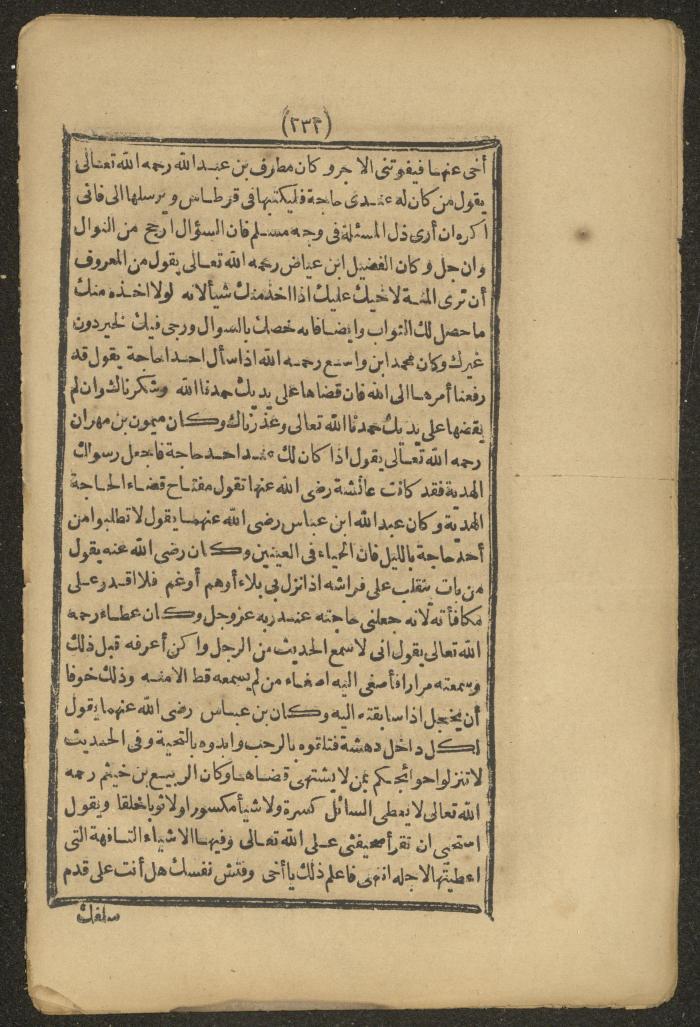 (٢٣٢)
أخى عنها فيفوتنى الاجر وكان مطارف بن عبد الله رحمه الله تعالى
يقول من كان له عندى حاجة فليكتبها فى قرطاس ويرسلها الى فانى
اكره ان أرى ذل المسئلة فى وجه مسلم فان السؤال ارجح من النوال
وان جل وكان الفضيل ابن عياض رحمه الله تعالى يقول من المعروف
أن ترى المنة لاخيك عليك اذا اخذ منك شيأ لانه لولا اخذه منك
ما حصل لك الثواب وايضا فانه خصك بالسوال ورجى فيك الخير دون
غيرك وكان محمد ابن واسع رحمه الله اذا سأل احدا حاجة يقول قد
رفعنا أمرها الى الله فان قضاها على يديك حمدنا الله وشكرناك وان لم
يقضها على يديك حمدنا الله تعالى وعذرناك وكان ميمون بن مهران
رحمه الله تعالى يقول اذا كان لك عند احد حاجة فاجعل رسولك
الهدية فقد كانت عائشة رضى الله عنها تقول مفتاح قضاء الحاجة
الهديّة وكان عبد الله ابن عباس رضى الله عنهما يقول لا تطلبوا من
أحد حاجة بالليل فان الحياء فى العينين وكان رضى الله عنه يقول
من بات يتقلب على فراشه اذا نزل بى بلاء أوهم أوغم فلا اقدر على
مكافأته لانه جعلنى حاجته عند ربه عز وجل وكان عطاء رحمه
الله تعالى يقول انى لاسمع الحديث من الرجل واكن أعرفه قبل ذلك
وسمعته مرارا فأصغى اليه اصغاء من لم يسمعه قط الامنه وذلك خوفا
أن يخجل اذا سابقته اليه وكان بن عباس رضى الله عنهما يقول
لكل داخل دهشة فتلقوه بالرحب وابدوه بالتحية وفى الحديث
لا تنزلوا حوائجكم بمن لا يشتهى قضاها وكان الربيع بن خيثم رحمه
الله تعالى لا يعطى السائل كسرة ولا شيأ مكسورا ولا ثوبا خلقا ويقول
استحى ان تقرأ صحيفتى على الله تعالى وفيها الاشياء التافهة التى
اعطيتها لاجله انتهى فاعلم ذلك يا أخى وفتش نفسك هل أنت على قدم
سلفك